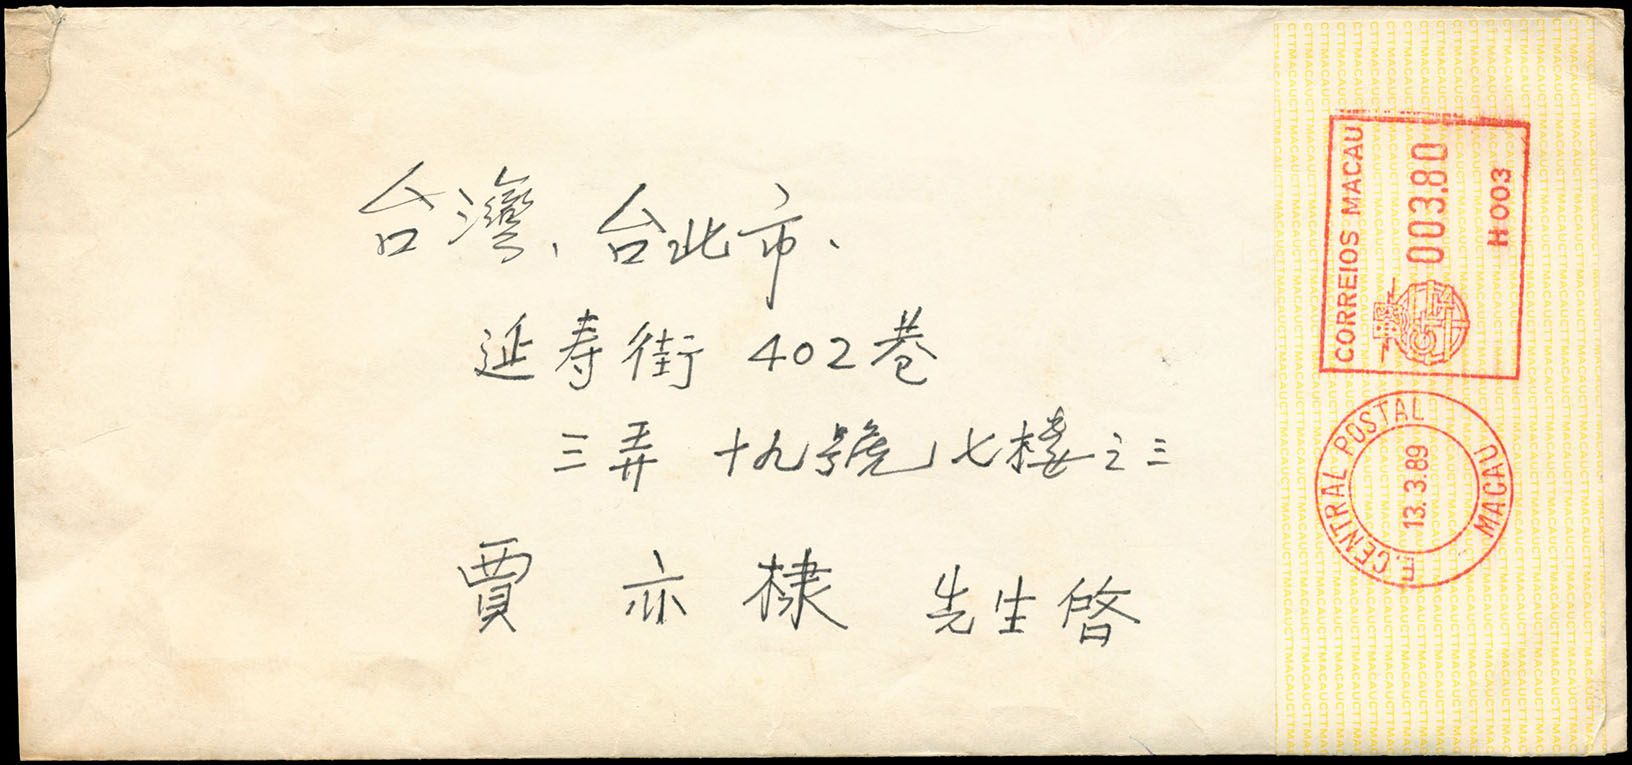 台灣、台北市、
延寿街 402巷
三弄 十九號 七樓之三
賈 亦 棣 先生啓
CORREIOS MACAU
003.80
H 003
E.CENTRAL POSTAL
13.3.89
MACAU
CTTMACAUCTTMACAUCTTMACAUCTTMACAU